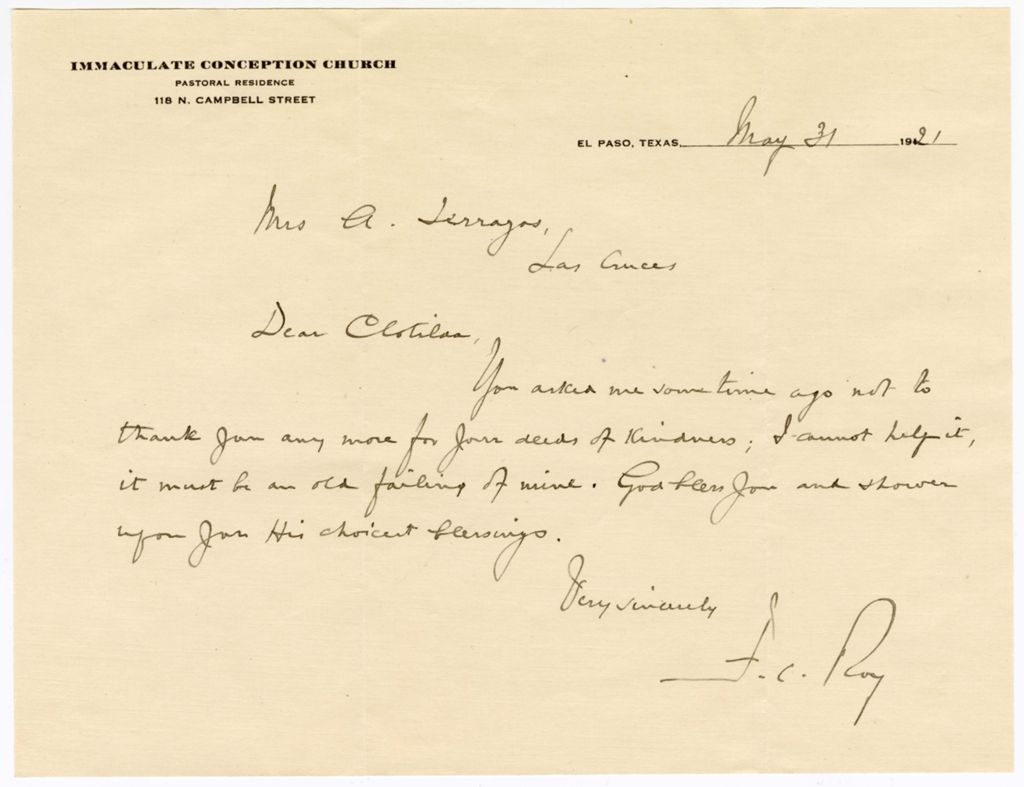 IMMACULATE CONCEPTION CHURCH
PASTORAL RESIDENCE
118 N. CAMPBELL STREET
EL PASO, TEXAS, May 31 1921
Mrs A. Terrazas,
Las Cruces
Dear Clotilda,
You asked me sometime ago not to
thank you any more for your deeds of kindness; I cannot help it,
it must be an old failing of mine. God bless you and shower
upon you His choicest blessings.
Very sincerely
F. C. Roy